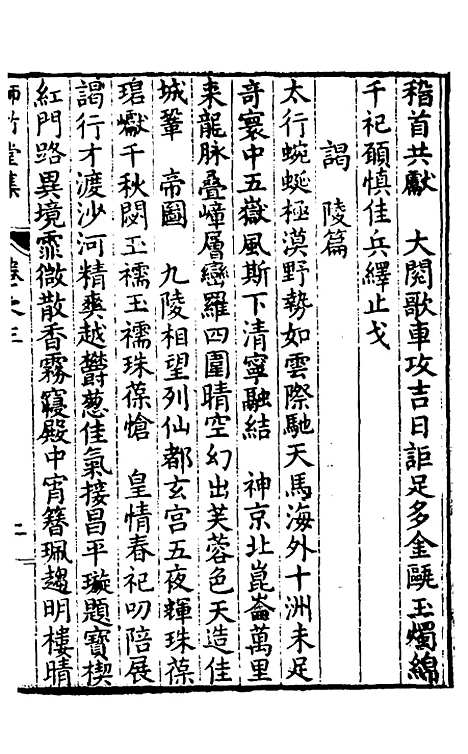 稽首共獻　大閱歌車攻吉日詎足多金甌玉燭綿
千祀願慎佳兵繹止戈
謁　陵篇
太行蜿蜒極漠野勢如雲際馳天馬海外十洲未足
奇寰中五嶽風斯下清寧融結　神京北崑崙萬里
来龍脉疊嶂層巒羅四圍晴空幻出芙蓉色天造佳
城鞏　帝圖　九陵相望列仙都玄宫五夜輝珠葆
珺巘千秋閟玉襦玉襦珠葆愴　皇情春祀叨陪展
謁行才渡沙河精爽越鬱葱佳氣接昌平璇題寶楔
紅門路異境霏微散香霧寢殿中宵簪珮趨明樓晴
師竹堂集
卷之三
二